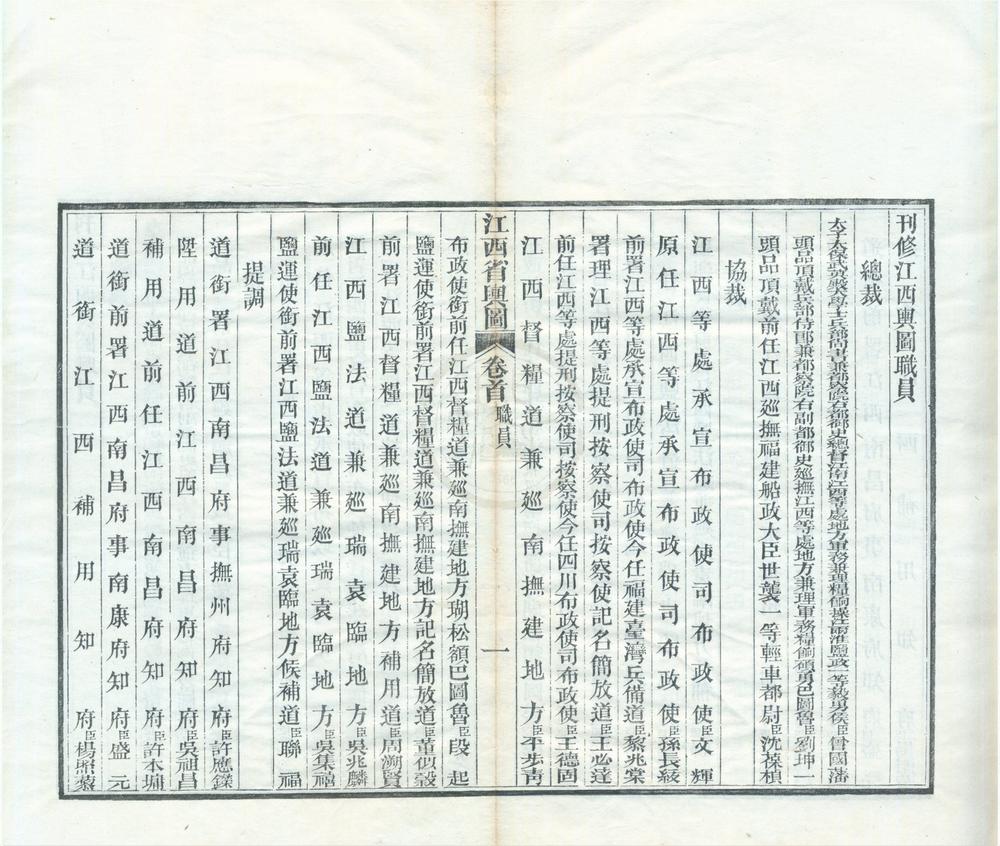 刊修江西輿圖職員
總裁
太子太保武英殿大學士兵部尚書兼都察院右都御史總督江南江西等處地方軍務兼理糧餉操江兩淮鹽政一等毅勇侯臣曾國藩
頭品頂戴兵部侍郎兼都察院右副都御史巡撫江西等處地方兼理軍務糧餉碩勇巴圖魯臣劉坤一
頭品頂戴前任江西巡撫福建船政大臣世襲一等輕車都尉臣沈葆楨
協裁
江西等處承宣布政使司布政使臣文輝
原任江西等處承宣布政使司布政使臣孫長紱
前署江西等處承宣布政使司布政使今任福建臺灣兵備道臣黎兆棠
署理江西等處提刑按察使司按察使記名簡放道臣王必達
前任江西等處提刑按察使司按察使今任四川布政使司布政使臣王德固
江西督糧道兼巡南撫建地方臣平步青
江西省輿圖 卷首 職員 一
布政使銜前任江西督糧道兼巡南撫建地方瑚松額巴圖魯臣段起
鹽運使銜前署江西督糧道兼巡南撫建地方記名簡放道臣董似穀
前署江西督糧道兼巡南撫建地方補用道臣周溯賢
江西鹽法道兼巡瑞袁臨地方臣吳兆麟
前任江西鹽法道兼巡瑞袁臨地方臣吳集禧
鹽運使銜前署江西鹽法道兼巡瑞袁臨地方候補道臣聯福
提調
道銜署江西南昌府事撫州府知府臣許應鑅
陞用道前江西南昌府知府臣吳祖昌
補用道前任江西南昌府知府臣許本墉
道銜前署江西南昌府事南康府知府臣盛元
道銜江西補用知府臣楊照藜